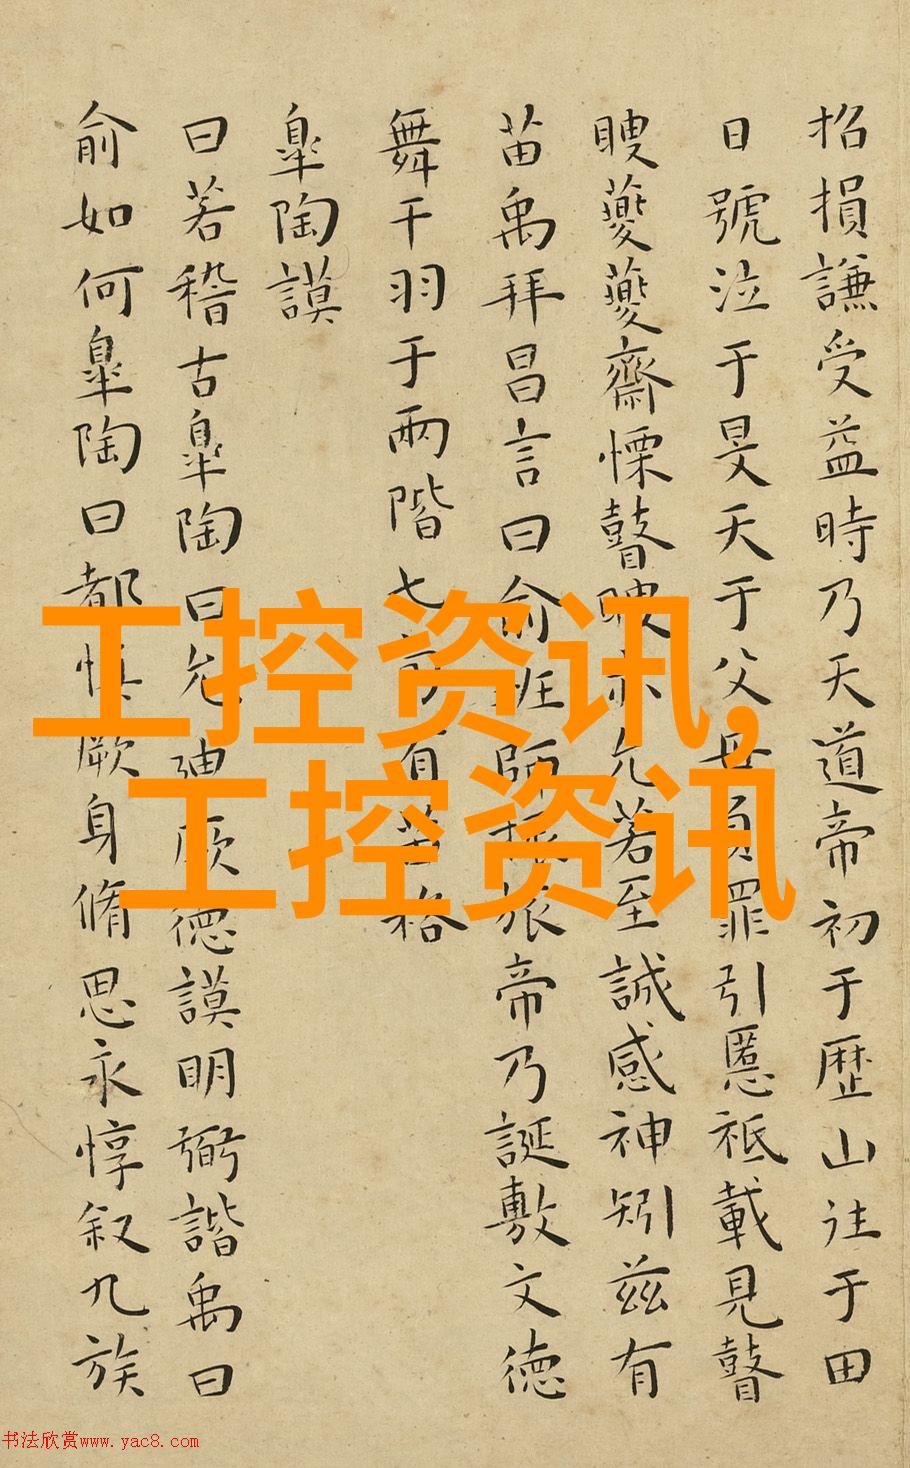 招損謙受益時乃天道帝初于歴山往于田
日號泣于旻天于父母負罪引慝祗載見瞽
瞍夔夔齋慄瞽瞍亦允若至誠感神矧茲有
苗禹拜昌言曰俞班師振旅帝乃誕敷文德
舞干羽于兩階七旬有苗格
皐陶謨
曰若稽古皐陶曰允迪厥德謨明弼諧禹曰
俞如何皐陶曰都慎厥身脩思永惇叙九族
工控资讯,
工控资讯
书法欣赏www.yac8.com